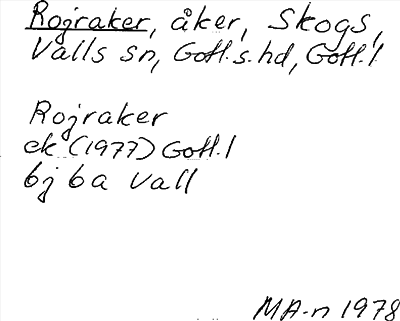 Rojraker, åker, Skogs,
Valls sn, Gotl. s. hd, Gotl. l
Rojraker
ek (1977) Gotl. l
6j 6a Vall
MA-n 1978